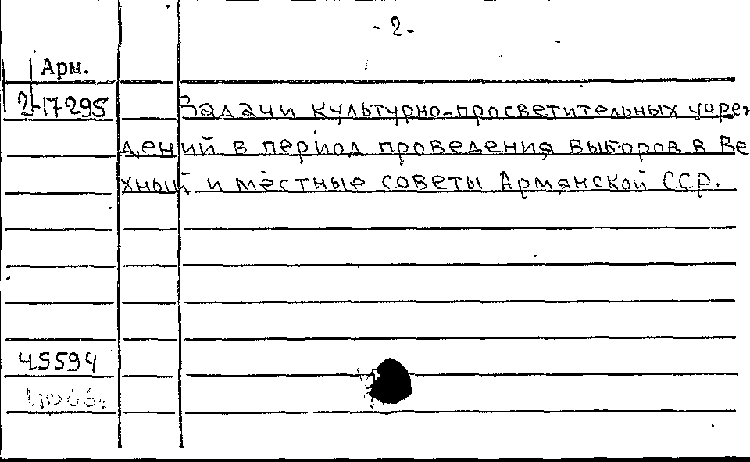 - 2 -
Арм.
2-17295 Задачи культурно-просветительных учреж
дений в период проведения выборов в Ве
хный и местные советы Армянской ССР.
45594